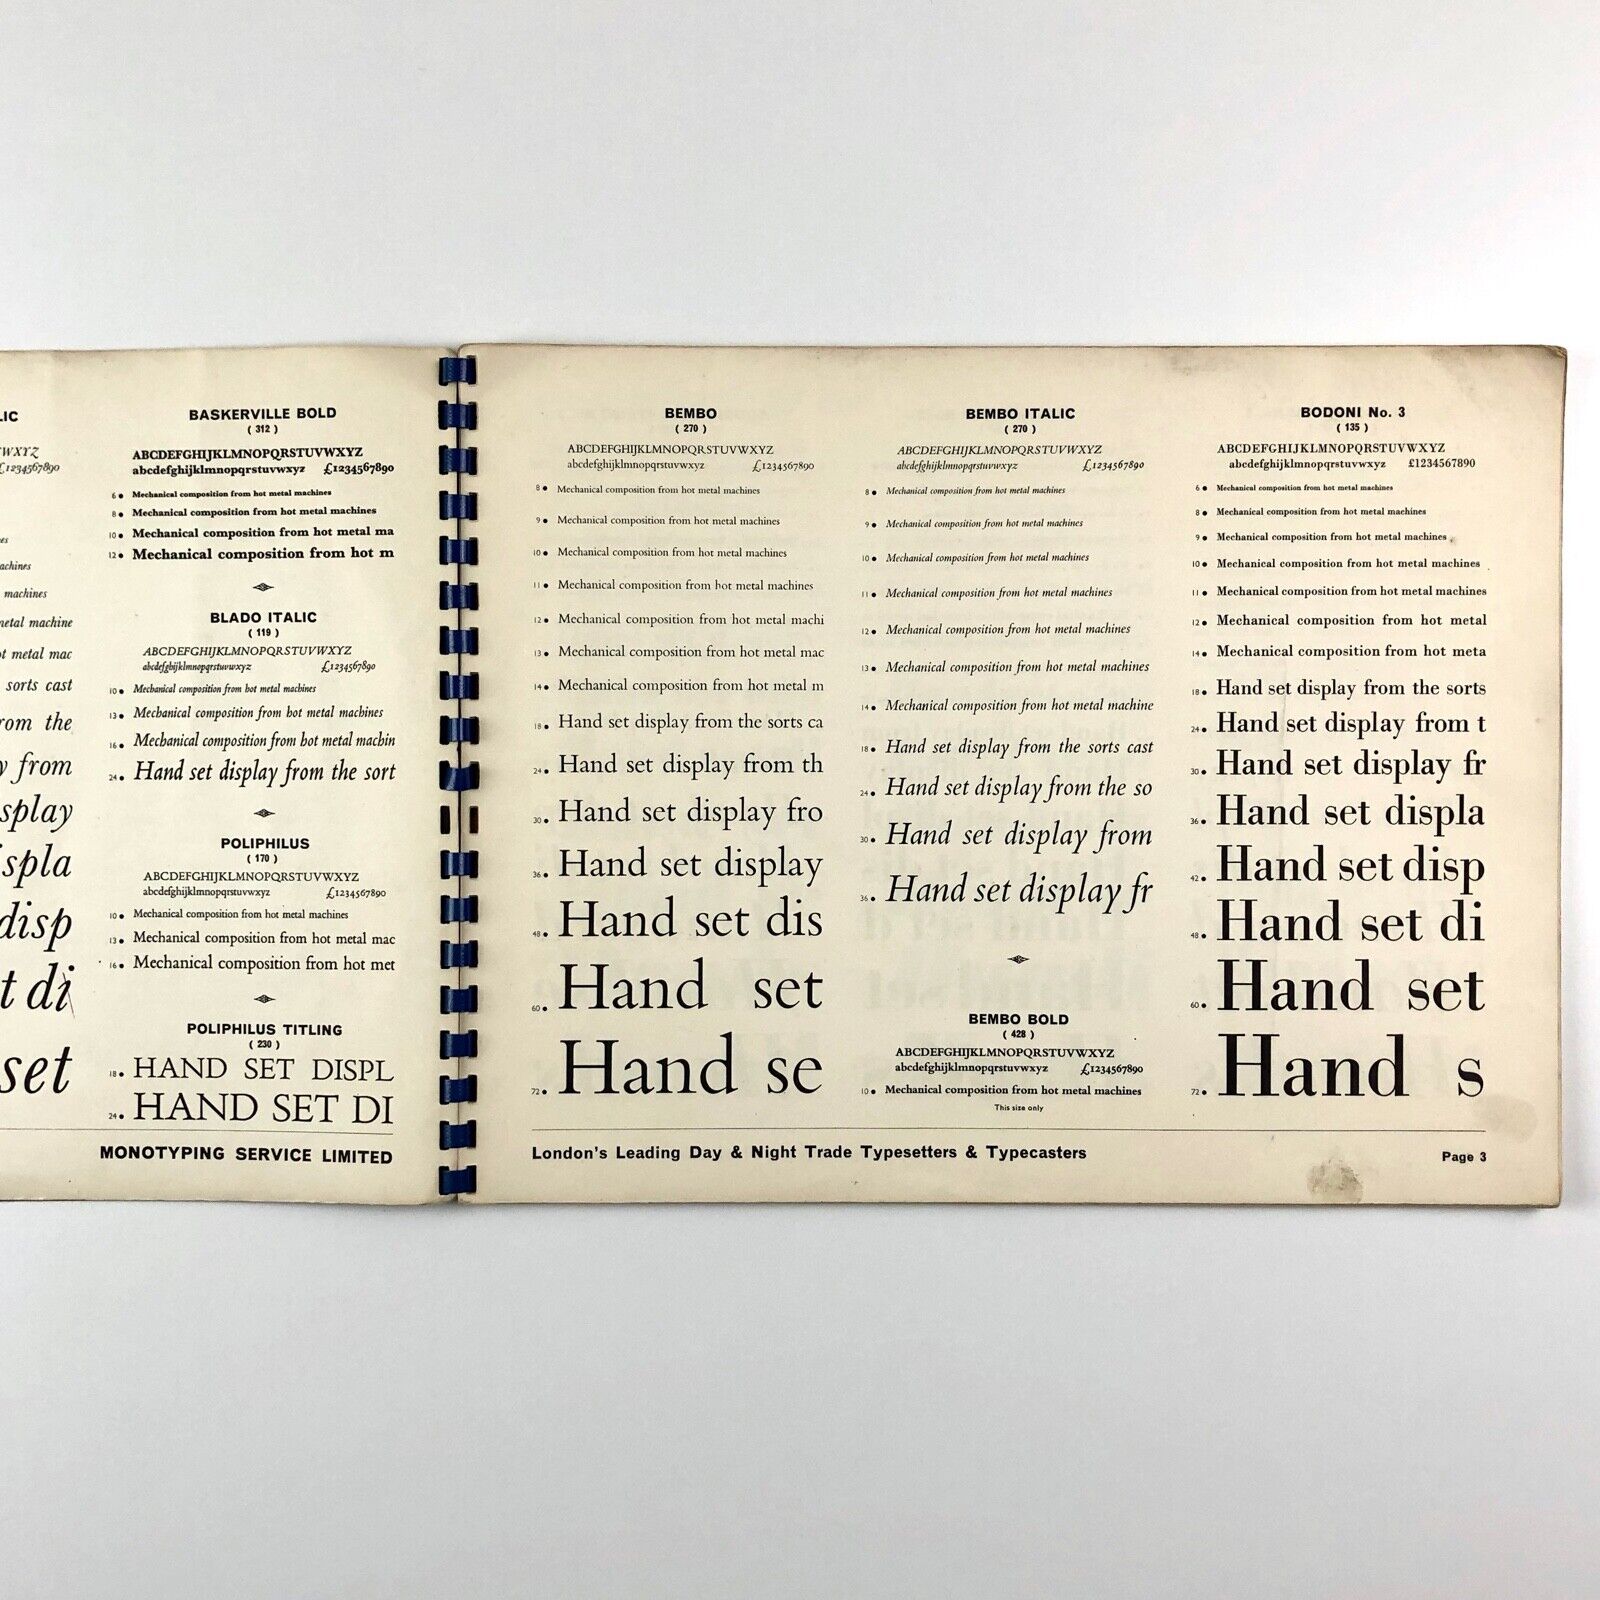 LIC
WXYZ
£1234567890
nes
achines
machines
metal machine
ot metal mac
sorts cast
rom the
y from
splay
ispla
disp
t di
set
BASKERVILLE BOLD
( 312 )
ABCDEFGHIJKLMNOPQRSTUVWXYZ
abcdefghijklmnopqrstuvwxyz £1234567890
6 • Mechanical composition from hot metal machines
8 • Mechanical composition from hot metal machines
10 • Mechanical composition from hot metal ma
12 • Mechanical composition from hot m
BLADO ITALIC
( 119 )
ABCDEFGHIJKLMNOPQRSTUVWXYZ
abcdefghijklmnopqrstuvwxyz £1234567890
10 • Mechanical composition from hot metal machines
13 • Mechanical composition from hot metal machines
16 • Mechanical composition from hot metal machin
24 • Hand set display from the sort
POLIPHILUS
( 170 )
ABCDEFGHIJKLMNOPQRSTUVWXYZ
abcdefghijklmnopqrstuvwxyz £1234567890
10 • Mechanical composition from hot metal machines
13 • Mechanical composition from hot metal mac
16 • Mechanical composition from hot met
POLIPHILUS TITLING
( 230 )
18 • HAND SET DISPL
24 • HAND SET DI
MONOTYPING SERVICE LIMITED
BEMBO
( 270 )
ABCDEFGHIJKLMNOPQRSTUVWXYZ
abcdefghijklmnopqrstuvwxyz £1234567890
8 • Mechanical composition from hot metal machines
9 • Mechanical composition from hot metal machines
10 • Mechanical composition from hot metal machines
11 • Mechanical composition from hot metal machines
12 • Mechanical composition from hot metal machi
13 • Mechanical composition from hot metal mac
14 • Mechanical composition from hot metal m
18 • Hand set display from the sorts ca
24 • Hand set display from th
30 • Hand set display fro
36 • Hand set display
48 • Hand set dis
60 • Hand set
72 • Hand se
BEMBO ITALIC
( 270 )
ABCDEFGHIJKLMNOPQRSTUVWXYZ
abcdefghijklmnopqrstuvwxyz £1234567890
8 • Mechanical composition from hot metal machines
9 • Mechanical composition from hot metal machines
10 • Mechanical composition from hot metal machines
11 • Mechanical composition from hot metal machines
12 • Mechanical composition from hot metal machines
13 • Mechanical composition from hot metal machines
14 • Mechanical composition from hot metal machine
18 • Hand set display from the sorts cast
24 • Hand set display from the so
30 • Hand set display from
36 • Hand set display fr
BEMBO BOLD
( 428 )
ABCDEFGHIJKLMNOPQRSTUVWXYZ
abcdefghijklmnopqrstuvwxyz £1234567890
10 • Mechanical composition from hot metal machines
This size only
BODONI No. 3
( 135 )
ABCDEFGHIJKLMNOPQRSTUVWXYZ
abcdefghijklmnopqrstuvwxyz £1234567890
6 • Mechanical composition from hot metal machines
8 • Mechanical composition from hot metal machines
9 • Mechanical composition from hot metal machines
10 • Mechanical composition from hot metal machines
11 • Mechanical composition from hot metal machines
12 • Mechanical composition from hot metal
14 • Mechanical composition from hot meta
18 • Hand set display from the sorts
24 • Hand set display from t
30 • Hand set display fr
36 • Hand set displa
42 • Hand set disp
48 • Hand set di
60 • Hand set
72 • Hand s
London's Leading Day & Night Trade Typesetters & Typecasters
Page 3